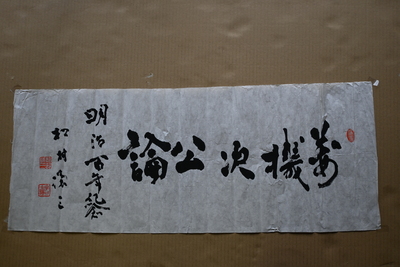 萬機決公論
明治百年
松村謙三